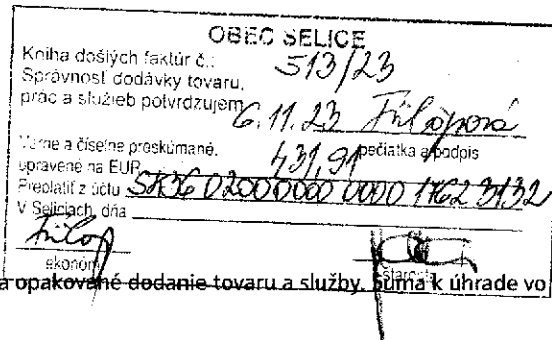 OBEC SELICE
Kniha došlých faktúr č.: 513/23
Správnosť dodávky tovaru,
prác a služieb potvrdzujem 6.11.23 Fülöpová
Vecne a číselne preskúmané. pečiatka a podpis
upravené na EUR 431,91
Preplatiť z účtu SK36 0200 0000 0000 1762 3132
V Seliciach, dňa
Fülöp
ekonóm starosta
a opakované dodanie tovaru a služby. Suma k úhrade vo